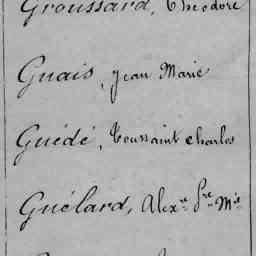 Groussard, Théodore
Guais, Jean Marie
Guédé, Toussaint Charles
Guélard, Alex.re P.re M.ie